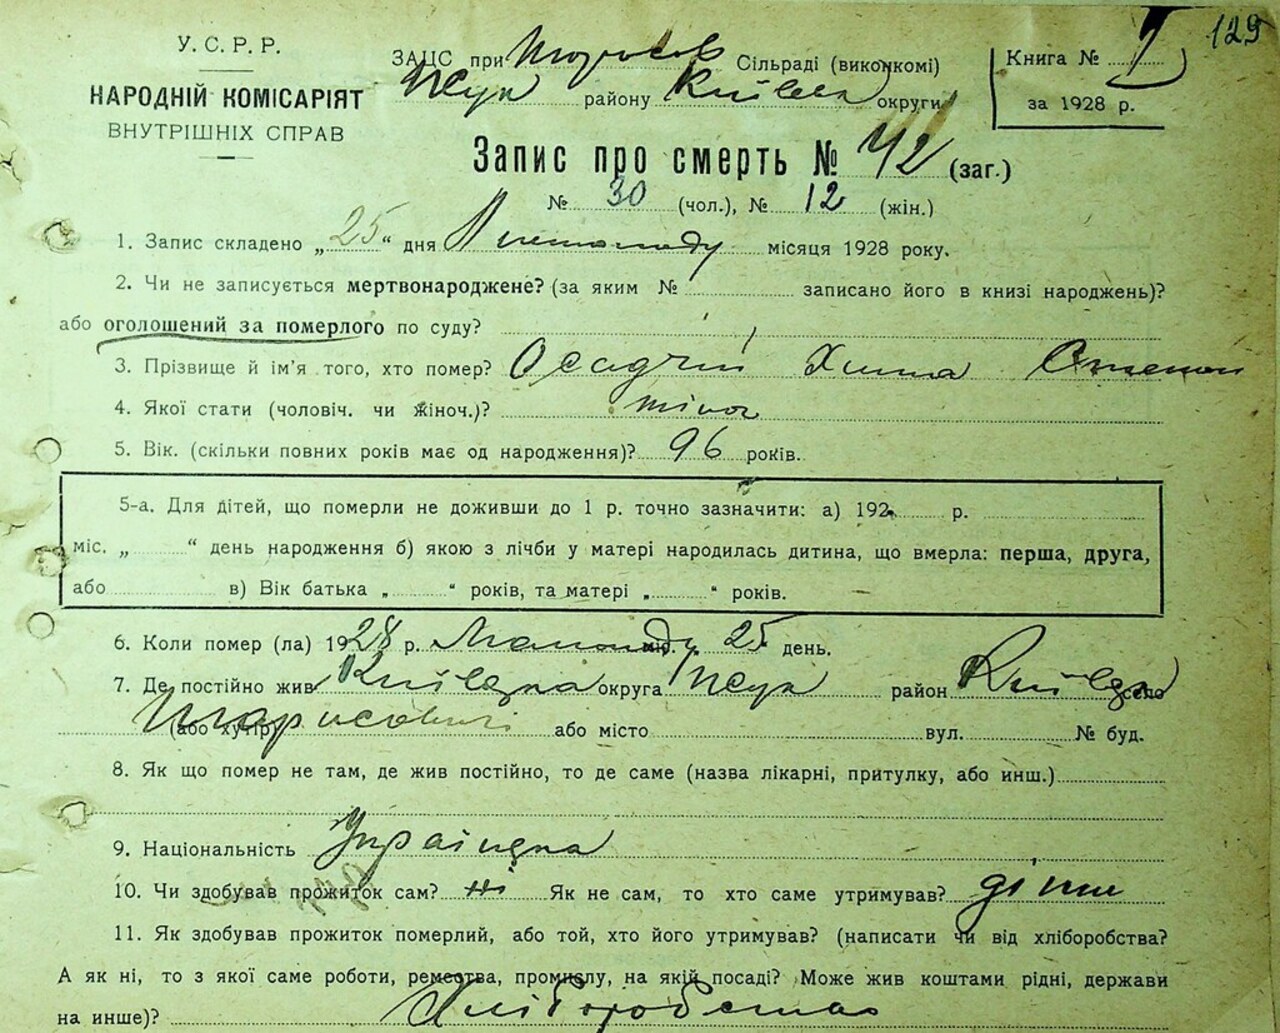 129
У. С. Р. Р.
НАРОДНІЙ КОМІСАРІЯТ
ВНУТРІШНІХ СПРАВ
ЗАЦС при Сільраді (виконкомі)
району Київськ округи
Книга № I
за 1928 р.
Запис про смерть № 42 (заг.)
№ 30 (чол.), № 12 (жін.)
1. Запис складено „25“ дня Листопаду місяця 1928 року.
2. Чи не записується мертвонароджене? (за яким № записано його в книзі народжень)?
або оголошений за померлого по суду?
3. Прізвище й ім'я того, хто помер? Осадчий
4. Якої статі (чоловіч. чи жіноч.)?
5. Вік. (скільки повних років має од народження)? 96 років.
5-а. Для дітей, що померли не доживши до 1 р. точно зазначити: а) 192 р.
міс. „ “ день народження б) якою з лічби у матері народилась дитина, що вмерла: перша, друга,
або в) Вік батька „ “ років, та матері „ “ років.
6. Коли помер (ла) 1928 р. міс. 25 день.
7. Де постійно жив Київська округа район село
(або хутір) або місто вул. № буд.
8. Як що помер не там, де жив постійно, то де саме (назва лікарні, притулку, або инш.)
9. Національність Українка
10. Чи здобував прожиток сам? ні Як не сам, то хто саме утримував? діти
11. Як здобував прожиток померлий, або той, хто його утримував? (написати чи від хліборобства?
А як ні, то з якої саме роботи, ремества, промислу, на якій посаді? Може жив коштами рідні, держави
на инше)? Хліборобство